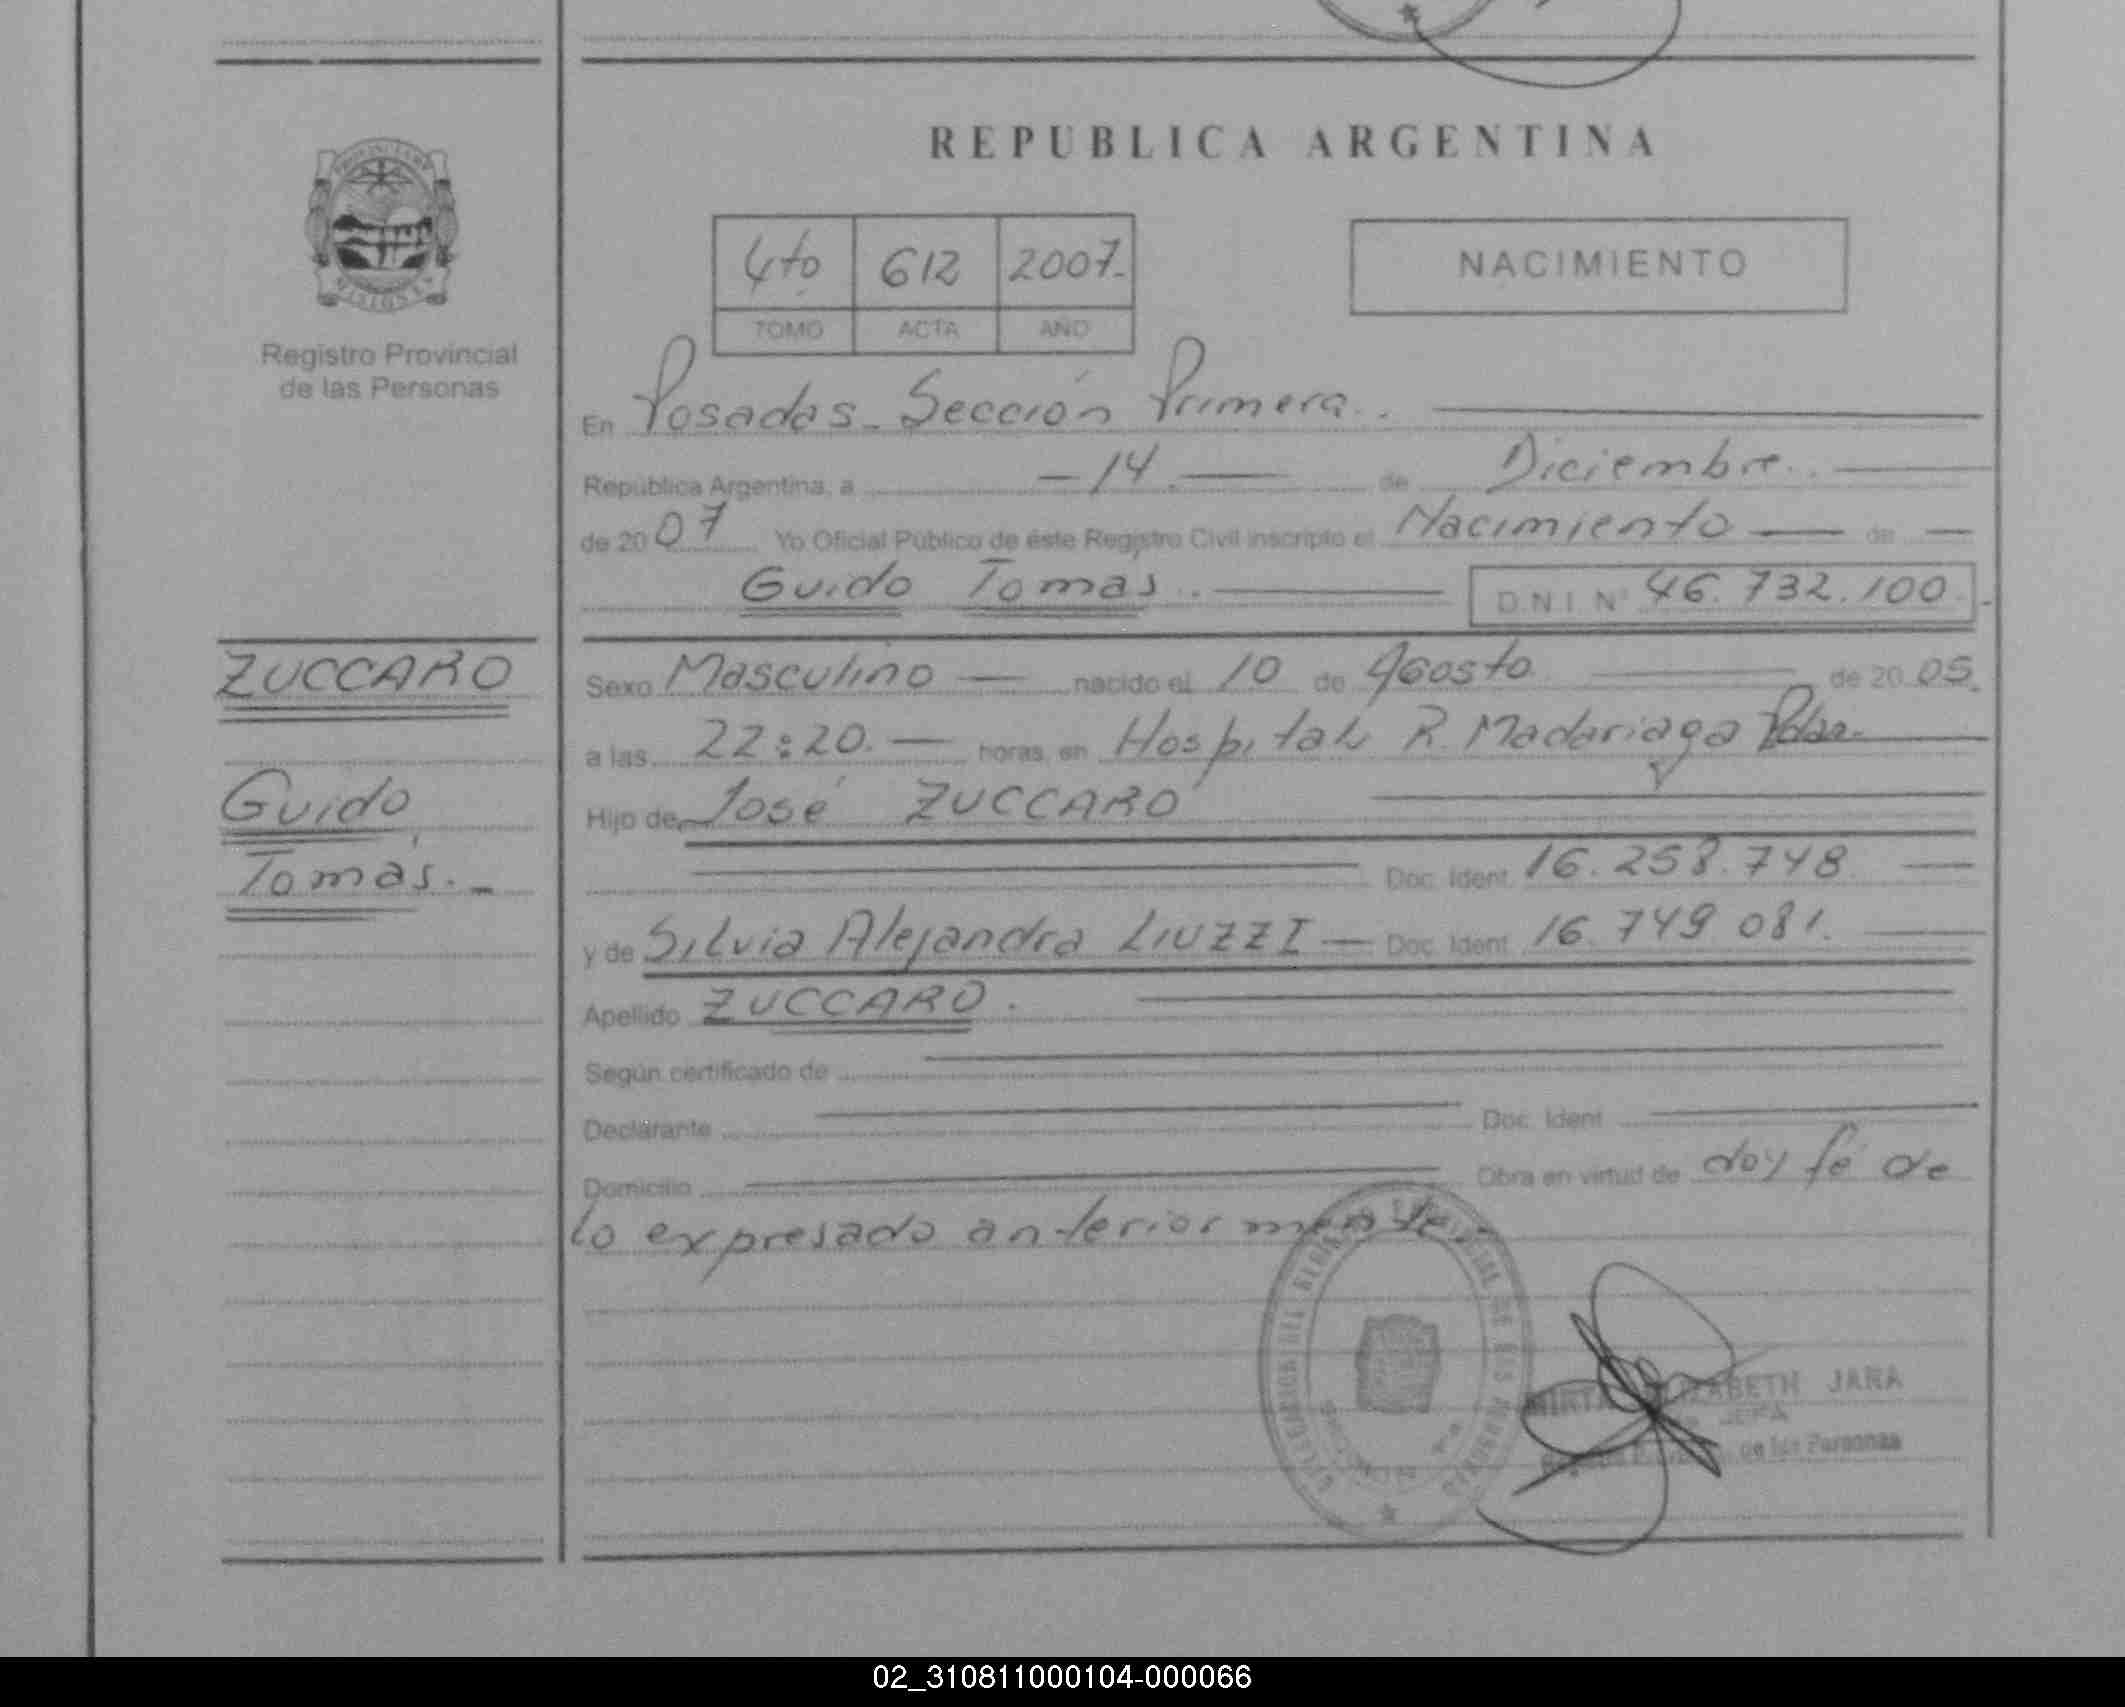 REPUBLICA ARGENTINA
4to 612 2007.
TOMO ACTA AÑO
NACIMIENTO
Registro Provincial
de las Personas
En Posadas - Sección Primera..
República Argentina, a - 14. - de Diciembre..
de 2007 Yo Oficial Público de éste Registro Civil inscripto el Nacimiento — de —
Guido Tomás.. D.N.I. Nº 46.732.100.-
ZUCCARO
Guido
Tomás.-
Sexo Masculino — nacido el 10 de Agosto de 2005.
a las 22:20.— horas, en Hospital R. Madariaga
Hijo de José ZUCCARO
Doc. Ident. 16.258.748
y de Silvia Alejandra LIUZZI — Doc. Ident. 16.749.081.
Apellido ZUCCARO.
Según certificado de
Declarante Doc. Ident.
Domicilio Obra en virtud de doy fé de
lo expresado anteriormente.-
MIRTA ELIZABETH JARA
JEFA
de las Personas
02_310811000104-000066